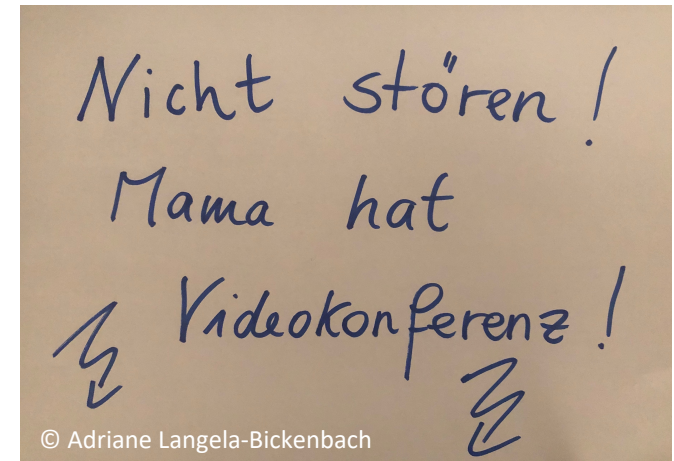 Nicht stören!
Mama hat
Videokonferenz!
© Adriane Langela-Bickenbach